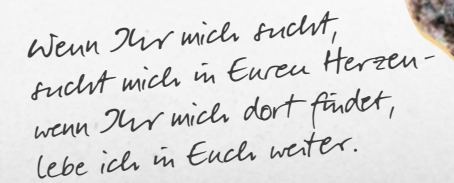 Wenn Ihr mich sucht,
sucht mich in Euren Herzen-
wenn Ihr mich dort findet,
lebe ich in Euch weiter.